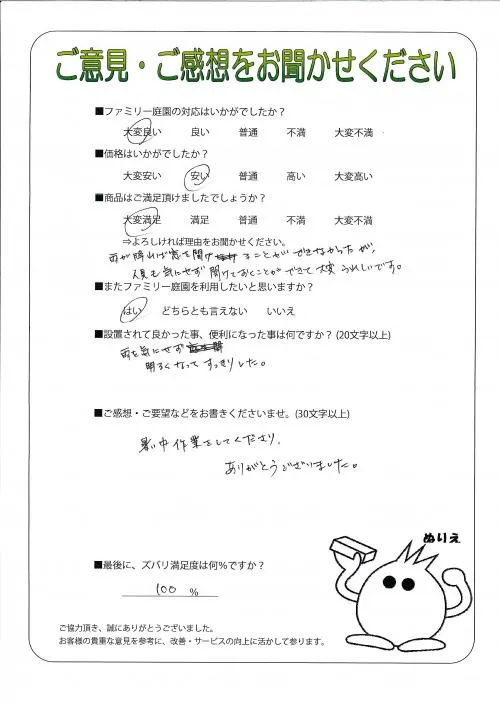 ご意見・ご感想をお聞かせください
■ファミリー庭園の対応はいかがでしたか？
大変良い 良い 普通 不満 大変不満
■価格はいかがでしたか？
大変安い 安い 普通 高い 大変高い
■商品はご満足頂けましてでしょうか？
大変満足 満足 普通 不満 大変不満
⇒よろしければ理由をお聞かせください。
雨が降れば窓を開けることができなかったが、
人目も気にせず開けておくことができて大変うれしいです。
■またファミリー庭園を利用したいと思いますか？
はい どちらとも言えない いいえ
■設置されて良かった事、便利になった事は何ですか？(20文字以上)
雨を気にせず
明るくなってすっきりした。
■ご感想・ご要望などをお書きくださいませ。(30文字以上)
暑い中作業をしてくださり、
ありがとうございました。
ぬりえ
■最後に、ズバリ満足度は何％ですか？
100 %
ご協力頂き、誠にありがとうございました。
お客様の貴重な意見を参考に、改善・サービスの向上に活かして参ります。